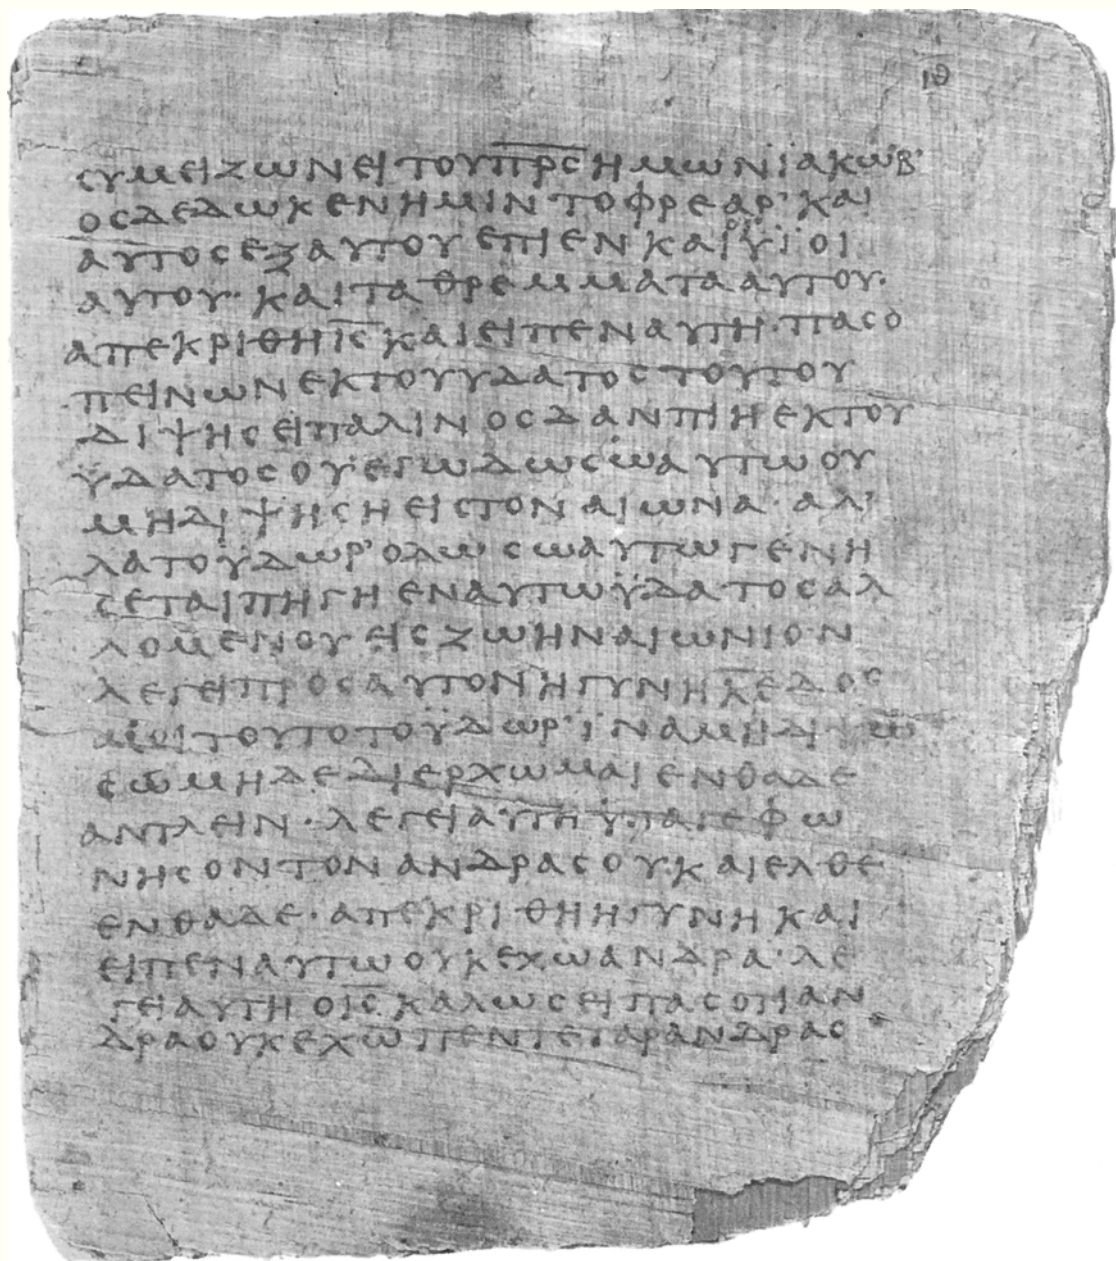 ιθ
ϲυμειζωνειτουπ̅ρ̅ϲ̅ημωνϊακωβ’
οϲδεδωκενημιντοφρεαρ’και
αυτοϲεξαυτουεπιενκαιοιϋϊοι
αυτου·καιταθρεμματααυτου·
απεκριθηι̅ϲ̅καιειπεναυτη·παϲο
πεινωνεκτουυδατοϲτουτου
διψηϲειπαλινοϲδανπιηεκτου
ϋδατοϲουεγωδωϲωαυτωου
μηδιψηϲηειϲτοναιωνα·αλ’
λατοϋδωρ’οδωϲωαυτωγενη
ϲεταιπηγηεναυτωϋδατοϲαλ
λομενουειϲζωηναιωνιον
λεγειπροϲαυτονηγυνηκ̅ε̅δοϲ
μοιτουτοτοϋδωρ’ϊναμηδιψω
ϲωμηδεδιερχωμαιενθαδε
αντλειν·λεγειαυτηϋπαγεφω
νηϲοντονανδραϲου·καιελθε
ενθαδε·απεκριθηηγυνηκαι
ειπεναυτωουκεχωανδρα·λε
γειαυτηοι̅ϲ̅καλωϲειπαϲοτιαν
δραουκεχωπεντεγαρανδραϲ